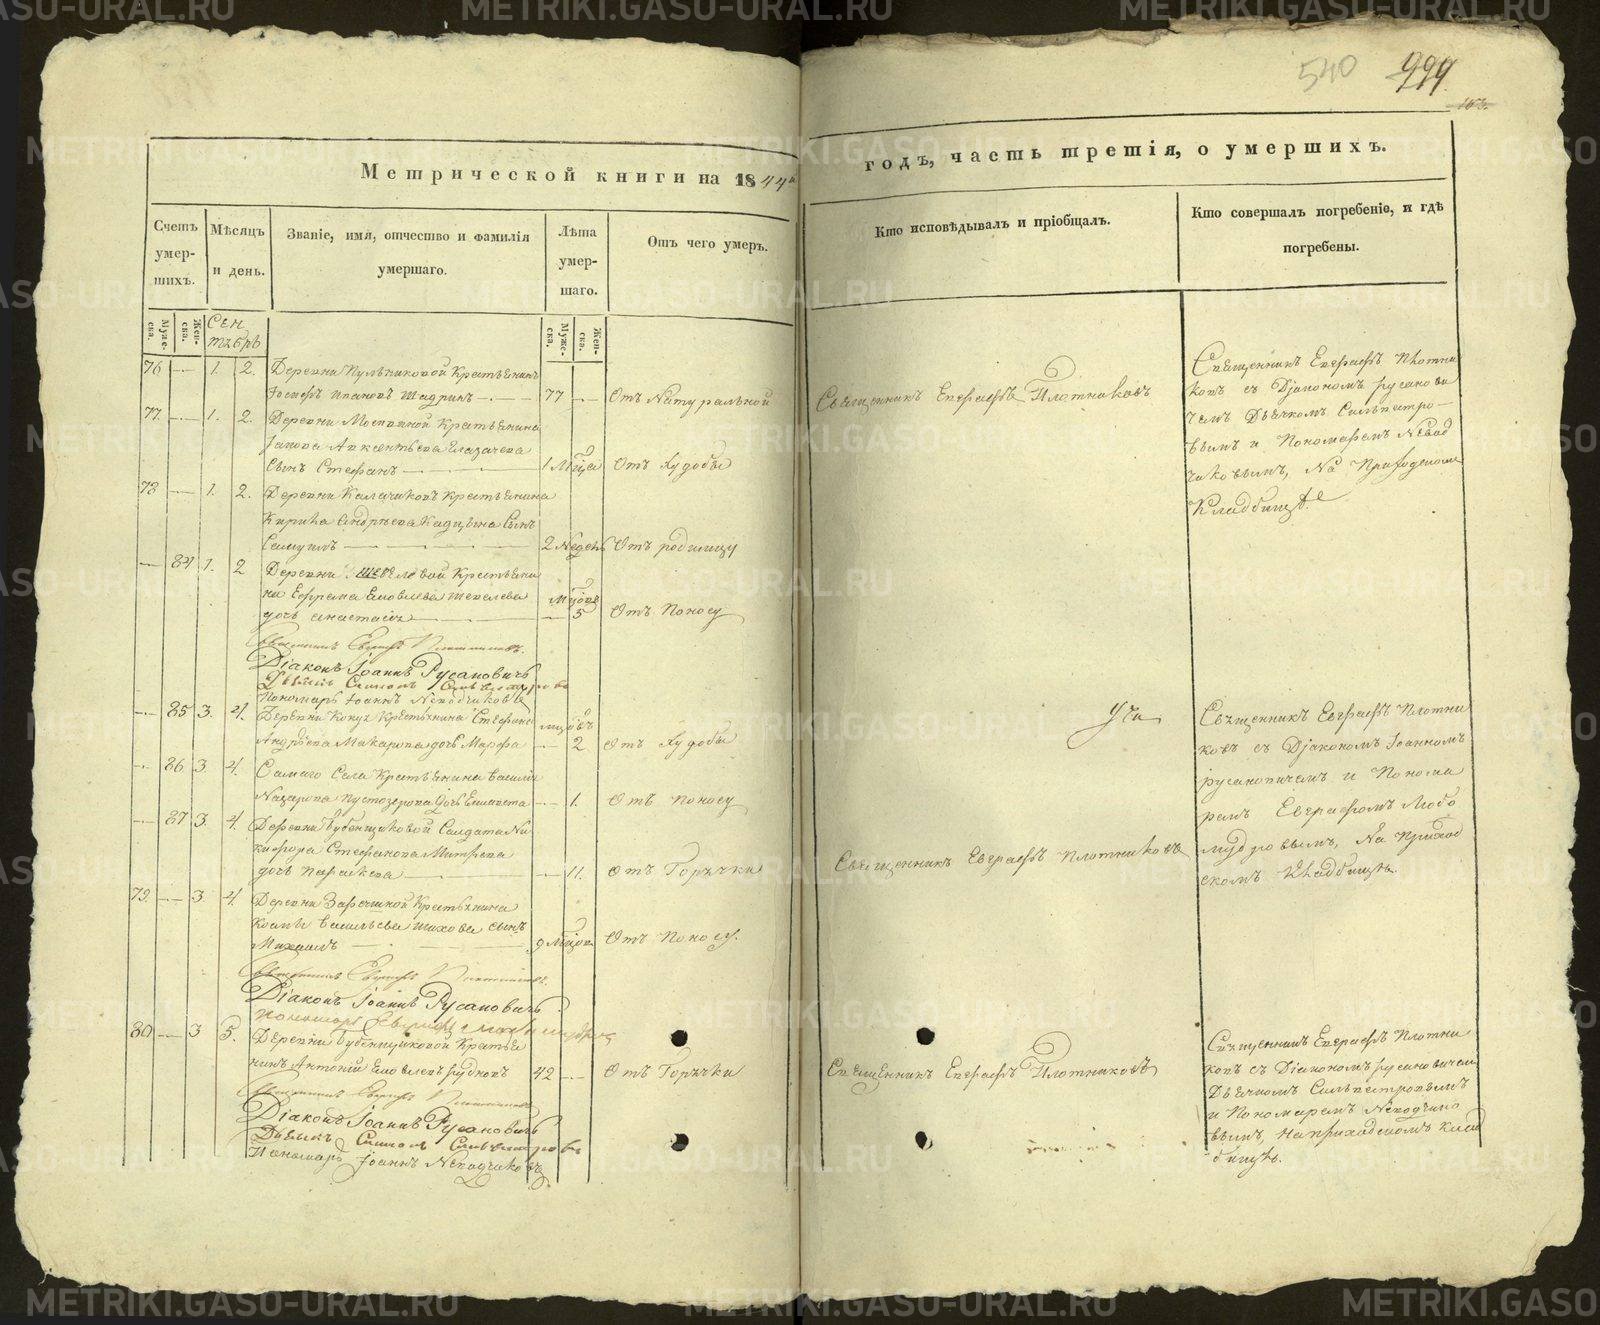 540 999
163.
Метрической книги на 1844й годъ, часть третія, о умершихъ.
Счетъ умер-шихъ.
Мѣсяцъ и день.
Званіе, имя, отчество и фамилія умершаго.
Лѣта умер-шаго.
Отъ чего умеръ.
Кто исповѣдывалъ и пріобщалъ.
Кто совершалъ погребеніе, и гдѣ погребены.
Муже-ска.
Жен-ска.
Сен
тябрь
Муже-ска.
Жен-ска.
76 — 1. 2. Деревни Крестьянинъ
Іосифъ Ивановъ Шадринъ — 77 — Отъ Натуральной
Священникъ Евграфъ Плотниковъ
Священникъ Евграфъ Плотни
ковъ съ Діакономъ Русанови
чемъ Дьячкомъ Сильвестро-
вымъ и Пономаремъ Невод
чиковымъ, На Приходскомъ
Кладбищѣ
77. — 1. 2. Деревни Крестьянина
сынъ Стефанъ — 1 Мѣца Отъ Худобы
78 — 1. 2. Деревни Крестьянина
Кирика Андреева сынъ
Самуилъ — 2 Недель Отъ родимцу
— 84 1. 2 Деревни Крестьяни
на Ефрема Яковлева Шевелева
дочь Анастасія — 5 Отъ Поносу
Священникъ Евграфъ Плотниковъ.
Діаконъ Іоаннъ Русановичъ
Дьячекъ Симонъ Сильвестровъ
Пономарь Іоаннъ Неводчиковъ
— 85 3. 4. Деревни Крестьянина Стефана
Андреева Макарова дочь Марфа — 2 Отъ Худобы
Священникъ Евграфъ Плотни
ковъ съ Діакономъ Іоанномъ
Русановичемъ и Понома
ремъ Евграфомъ Любо
мудровымъ, На Приход
скомъ Кладбищѣ.
— 86 3. 4. Самаго Села Крестьянина Василія
Назарова Пустозерова дочь Елисавета — 1. Отъ Поносу
— 87 3. 4. Деревни Бубенщиковой Салдата Ни
кифора Стефанова
дочь Параскева — 11. Отъ Горячки
Священникъ Евграфъ Плотниковъ
79. — 3. 4. Деревни Зарѣчной Крестьянина
Васильева сынъ
Михаилъ — 9 Отъ Поносу.
Священникъ Евграфъ Плотниковъ.
Діаконъ Іоаннъ Русановичъ
Пономарь Евграфъ Любомудровъ
80. — 3 5. Деревни Бубенщиковой Крестья
нинъ Антоній Яковлевъ 42 — Отъ Горячки
Священникъ Евграфъ Плотниковъ
Священникъ Евграфъ Плотни
ковъ съ Діакономъ Русановичемъ
Дьячкомъ Сильвестровымъ
и Пономаремъ Неводчико
вымъ, На приходскомъ клад
бищѣ.
Священникъ Евграфъ Плотниковъ
Діаконъ Іоаннъ Русановичъ
Дьячекъ Симонъ Сильвестровъ
Пономарь Іоаннъ Неводчиковъ
METRIKI.GASO-URAL.RU